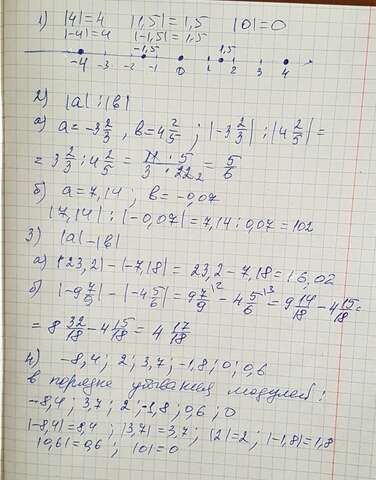 1) |4|=4 |1,5|=1,5 |0|=0
|-4|=4 |-1,5|=1,5
-1,5 1,5
-4 -3 -2 -1 0 1 2 3 4
2) |a| : |b|
а) a = -3 2/3, b = 4 2/5 ; |-3 2/3| : |4 2/5| =
= 3 2/3 : 4 2/5 = 11/3 · 5/22 2 = 5/6
б) a = 7,14 ; b = -0,07
|7,14| : |-0,07| = 7,14 : 0,07 = 102
3) |a| - |b|
а) |23,2| - |-7,18| = 23,2 - 7,18 = 16,02
б) |-9 7/9| - |-4 5/6| = 9 7/9 \2 - 4 5/6 \3 = 9 14/18 - 4 15/18 =
= 8 32/18 - 4 15/18 = 4 17/18
4) -8,4 ; 2 ; 3,7 ; -1,8 ; 0 ; 0,6
в порядке убывания модулей:
-8,4 ; 3,7 ; 2 ; -1,8 ; 0,6 ; 0
|-8,4| = 8,4 ; |3,7| = 3,7 ; |2| = 2 ; |-1,8| = 1,8
|0,6| = 0,6 ; |0| = 0